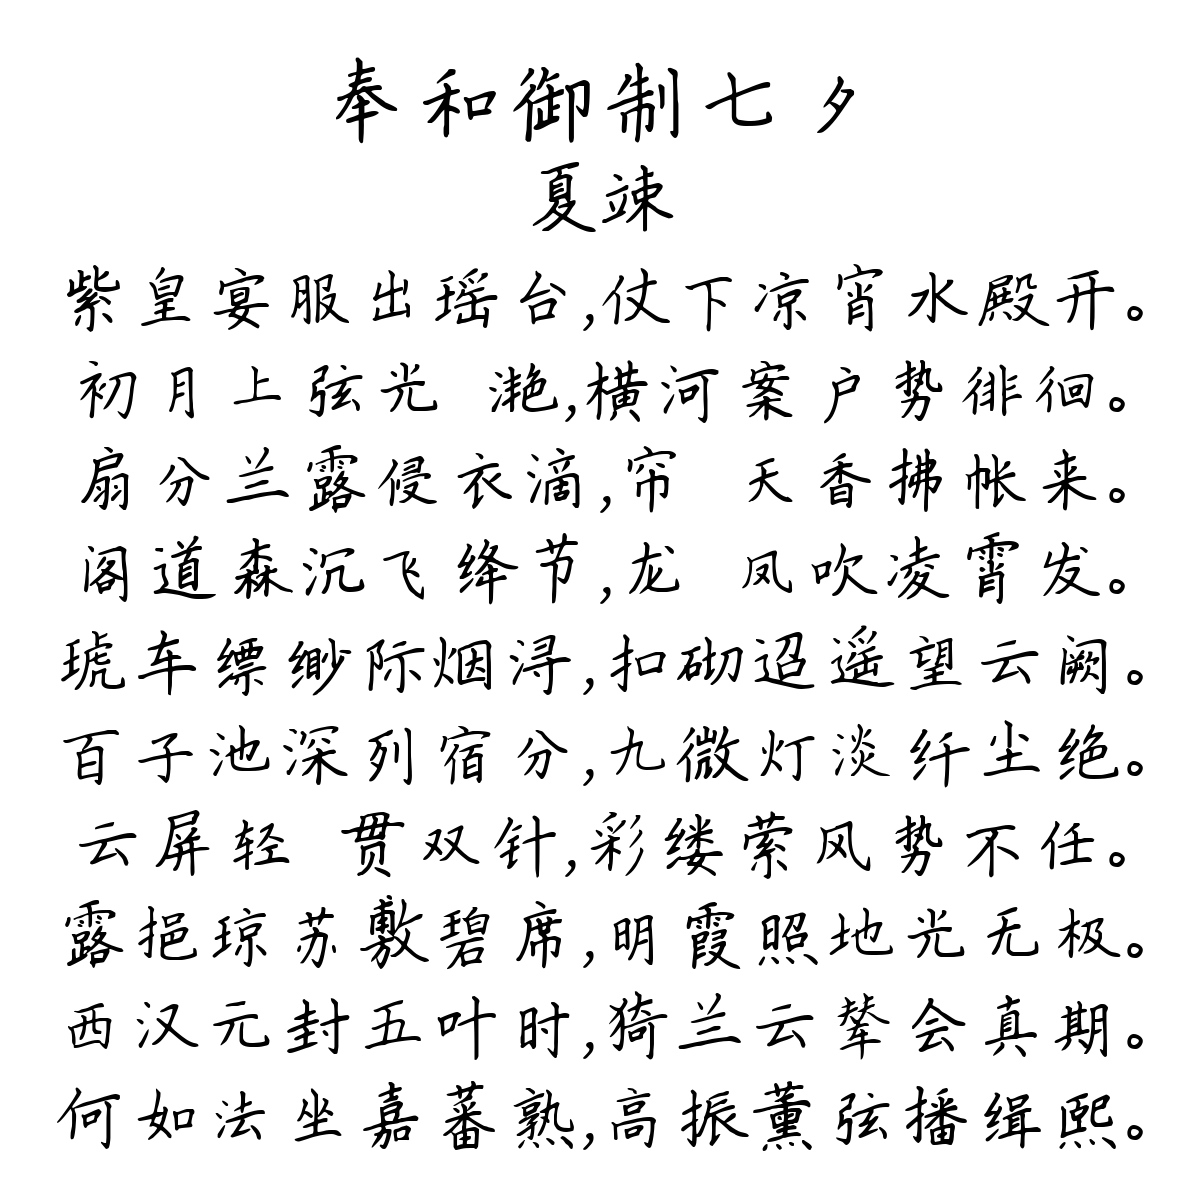 奉和御制七夕
夏竦
紫皇宴服出瑶台,仗下凉宵水殿开。
初月上弦光 滟,横河案户势徘徊。
扇分兰露侵衣滴,帘 天香拂帐来。
阁道森沉飞绛节,龙 凤吹凌霄发。
琥车缥缈际烟浔,扣砌迢遥望云阙。
百子池深列宿分,九微灯淡纤尘绝。
云屏轻 贯双针,彩缕萦风势不任。
露挹琼苏敷碧席,明霞照地光无极。
西汉元封五叶时,猗兰云辇会真期。
何如法坐嘉蕃熟,高振薰弦播缉熙。